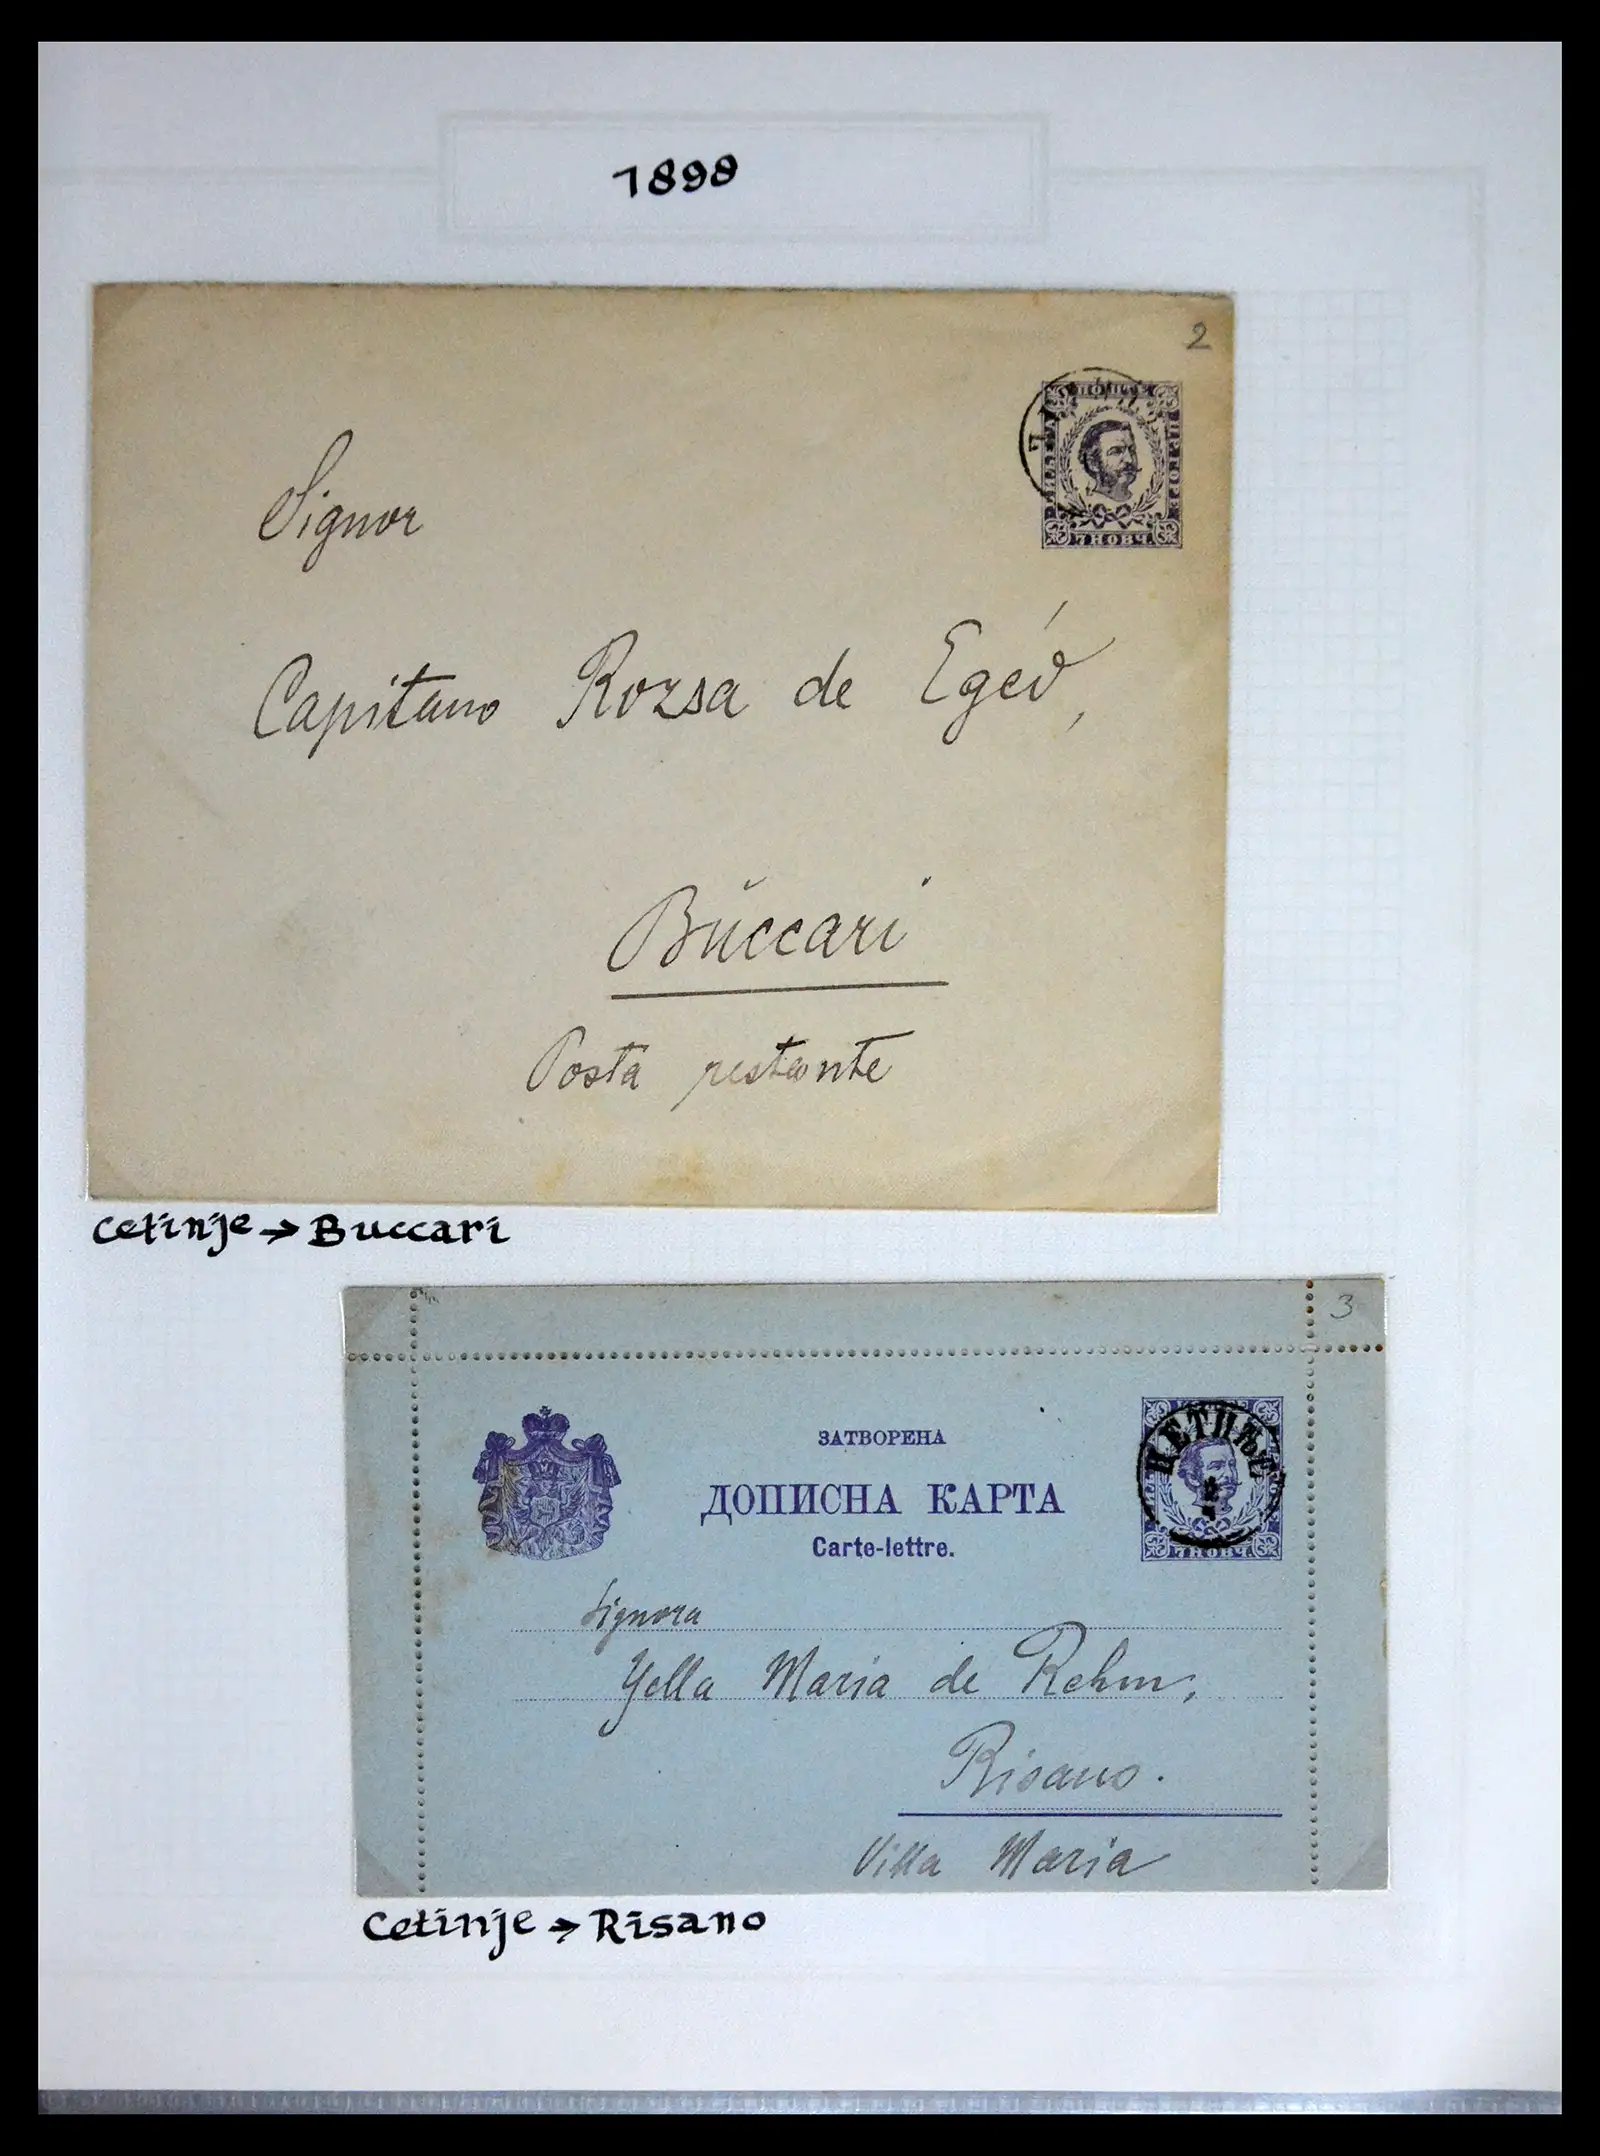 1898
2
7 НОВЧ.
Signor
Capitano Rozsa de Egéd,
Buccari
Posta restante
Cetinje → Buccari
3
ЗАТВОРЕНА
ДОПИСНА КАРТА
Carte-lettre.
ЦЕТИЊЕ
7 НОВЧ.
Signora
Yella Maria de Rehm,
Risano.
Villa Maria
Cetinje → Risano